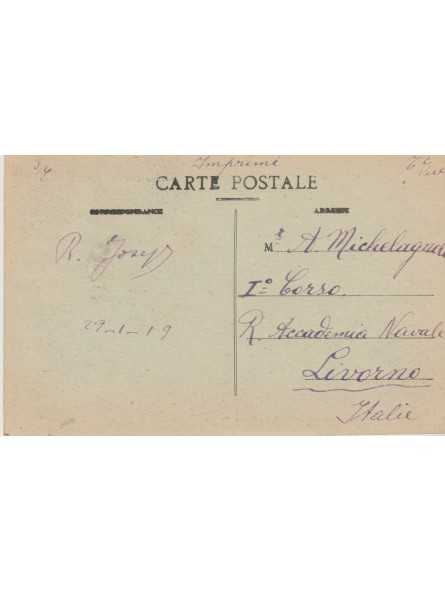 Imprimé
CARTE POSTALE
CORRESPONDANCE
ADRESSE
R. Josep
29-1-19
Mr A. Michelagnoli
I° Corso
R. Accademia Navale
Livorno
Italie